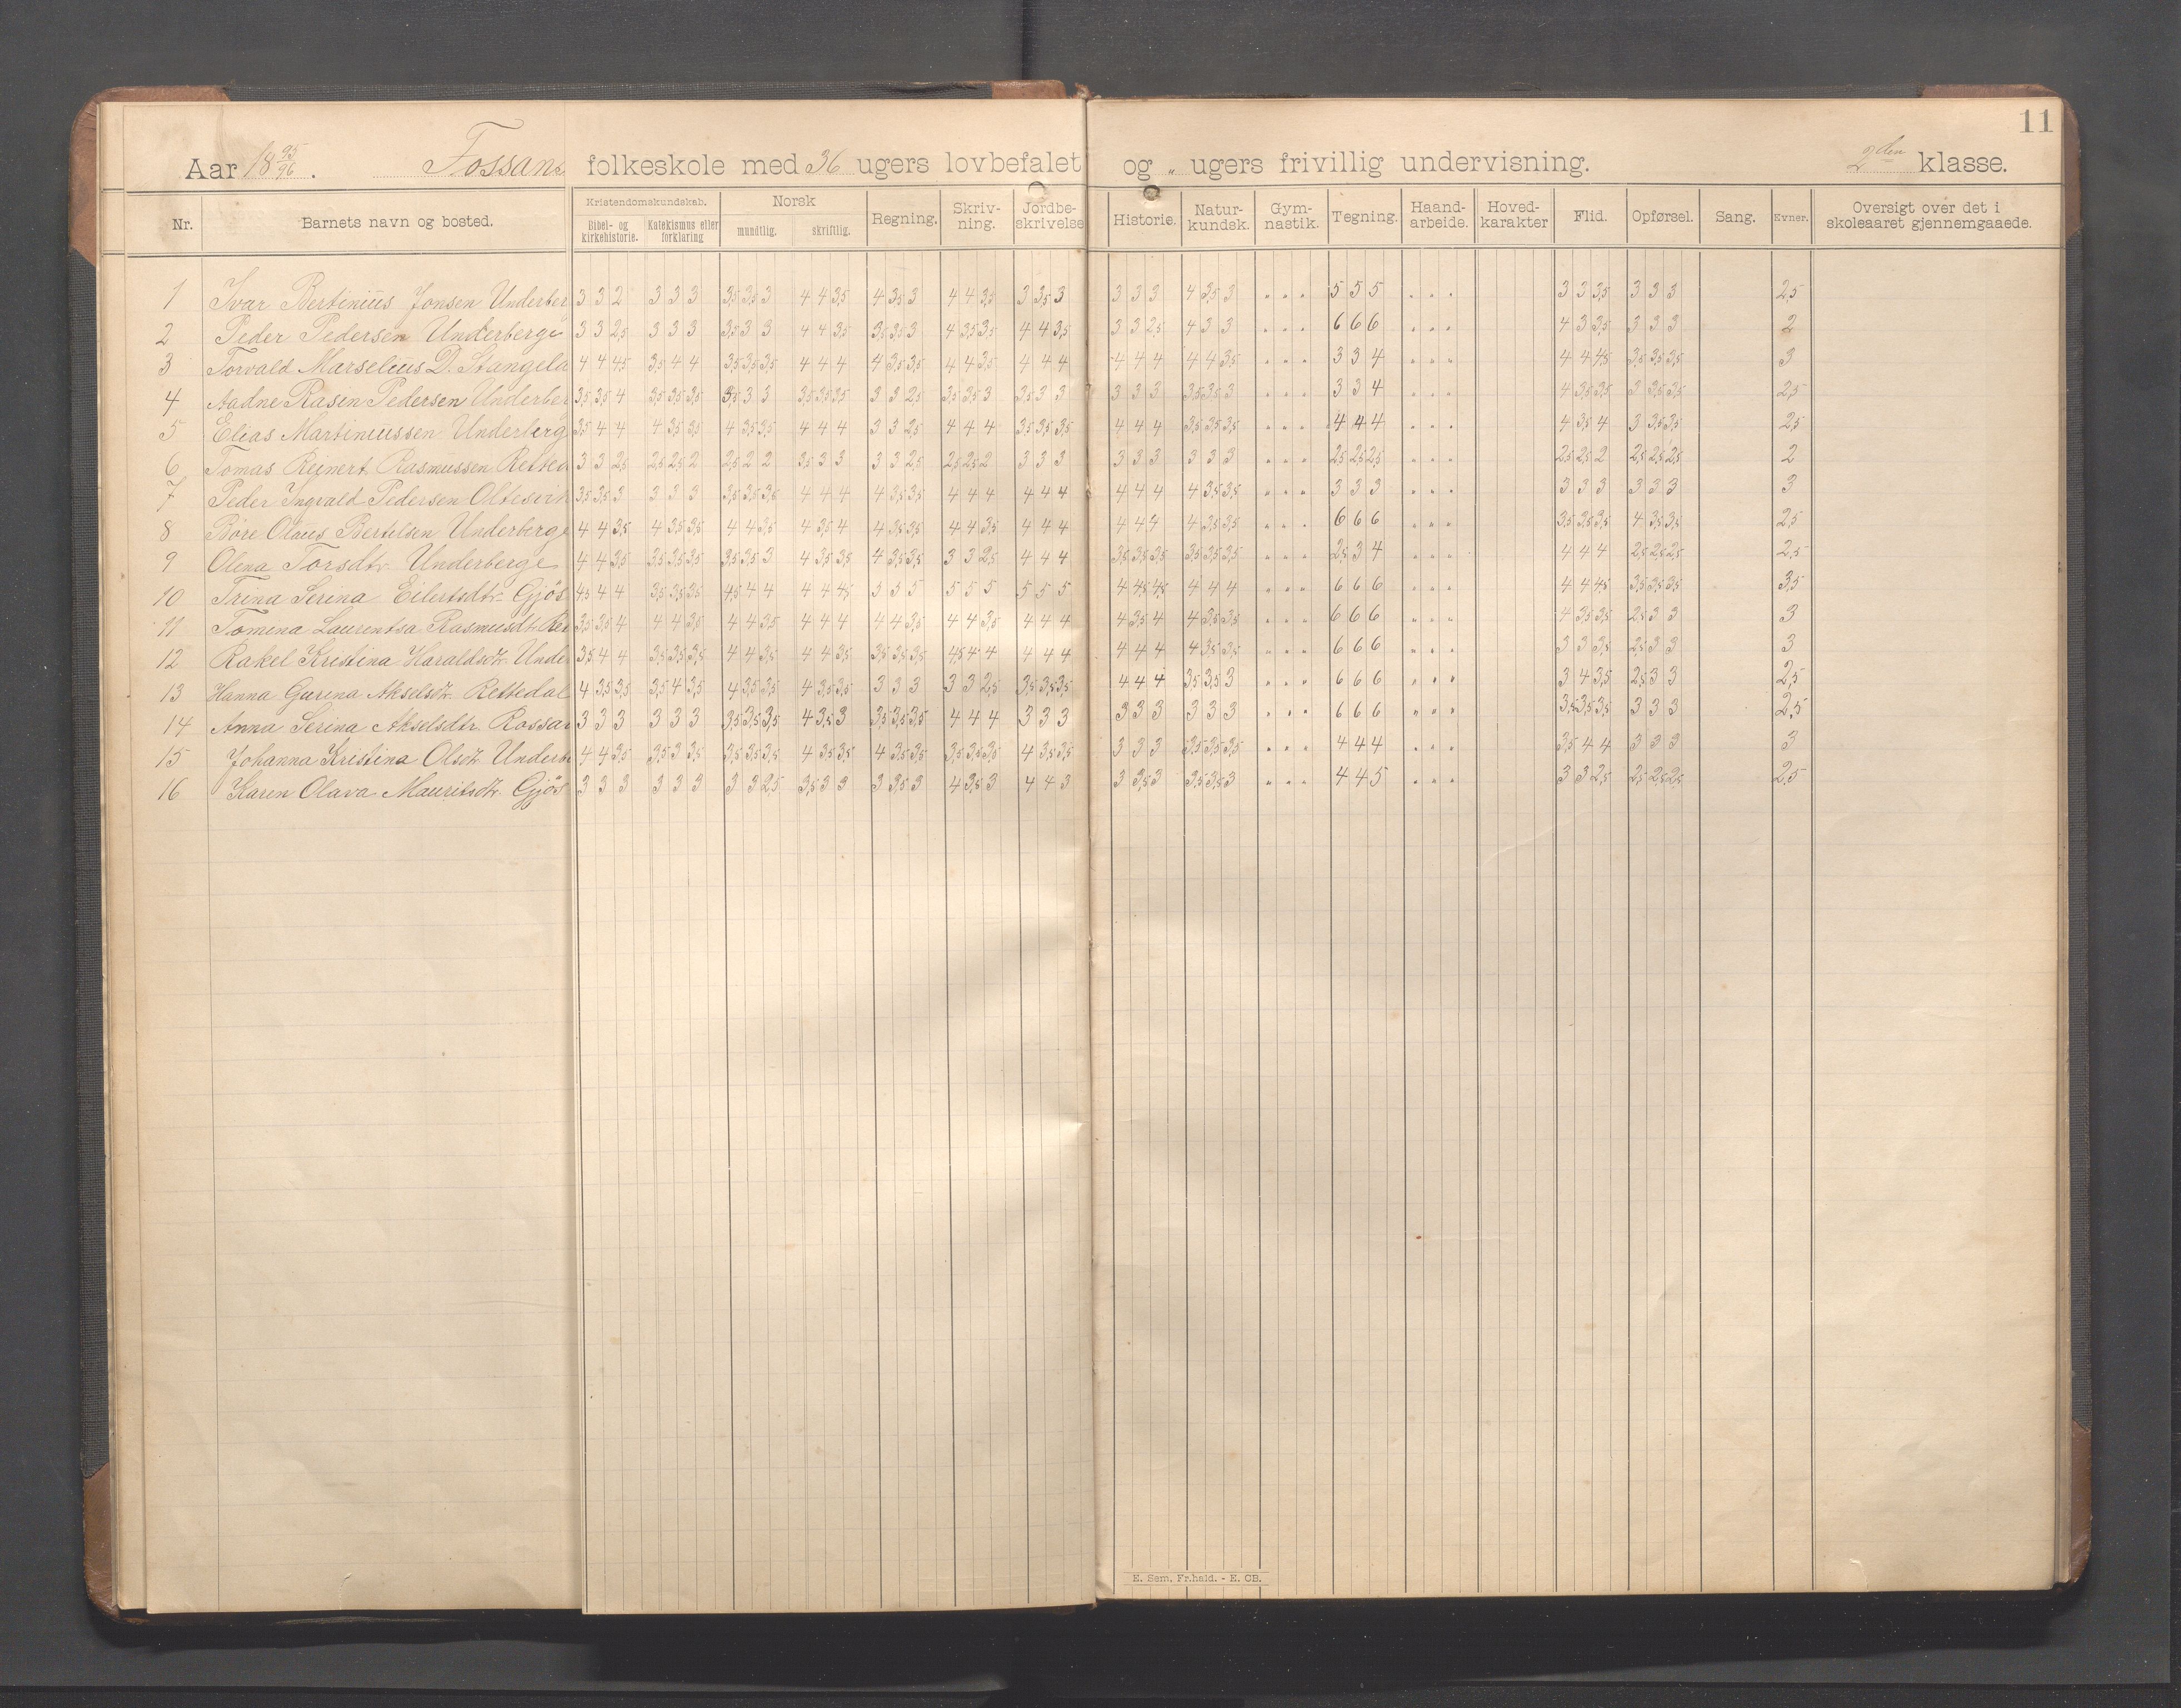 11
Aar 18 95/96. Fossans folkeskole med 36 ugers lovbefalet og „ ugers frivillig undervisning. 2den klasse.
Nr. Barnets navn og bosted. Kristendomskundskab. Bibel- og kirkehistorie. Katekismus eller forklaring Norsk mundtlig. skriftlig. Regning. Skriv-ning. Jordbe-skrivelse Historie. Natur-kundsk. Gym-nastik. Tegning. Haand-arbeide. Hoved-karakter Flid. Opførsel. Sang. Evner. Oversigt over det i skoleaaret gjennemgaaede.
1 Ivar Bertinius Jonsen Underber 3 3 2 3 3 3 3,5 3,5 3 4 4 3,5 4 3,5 3 4 4 3,5 3 3,5 3 3 3 3 4 3,5 3 „ „ „ 5 5 5 „ „ „ 3 3 3,5 3 3 3 2,5
2 Peder Pedersen Underberge 3 3 2,5 3 3 3 3,5 3 3 4 4 3,5 3,5 3,5 3 4 3,5 3,5 4 4 3,5 3 3 2,5 4 3 3 „ „ „ 6 6 6 „ „ „ 4 3 3,5 3 3 3 2
3 Torvald Marselius D. Stangela 4 4 4,5 3,5 4 4 3,5 3,5 3,5 4 4 4 4 3,5 3,5 4 4 3,5 4 4 4 4 4 4 4 4 3,5 „ „ „ 3 3 4 „ „ „ 4 4 4,5 3,5 3,5 3,5 3
4 Aadne Rasen Pedersen Underber 3,5 3,5 4 3,5 3,5 3,5 3,5 3 3 3,5 3,5 3,5 3 3 2,5 3,5 3,5 3 3,5 3 3 3 3 3 3,5 3,5 3 „ „ „ 3 3 4 „ „ „ 4 3,5 3,5 3 3,5 3,5 2,5
5 Elias Martiniussen Underberg 3,5 4 4 4 3,5 3,5 4 3,5 3,5 4 4 4 3 3 2,5 4 4 4 3,5 3,5 3,5 4 4 4 3,5 3,5 3,5 „ „ „ 4 4 4 „ „ „ 4 3,5 4 3 3,5 3,5 2,5
6 Tomas Reinert Rasmussen Retted 3 3 2,5 2,5 2,5 2 2,5 2 2 3,5 3 3 3 3 2,5 2,5 2,5 2 3 3 3 3 3 3 3 3 3 „ „ „ 2,5 2,5 2,5 „ „ „ 2,5 2,5 2 2,5 2,5 2,5 2
7 Peder Ingvald Pedersen Oltesvik 3,5 3,5 3 3 3 3 3,5 3,5 3,5 4 4 4 4 3,5 3,5 4 4 4 4 4 4 4 4 4 4 3,5 3,5 „ „ „ 3 3 3 „ „ „ 3 3 3 3 3 3 3
8 Børe Olaus Bertelsen Underberge 4 4 3,5 4 3,5 3,5 4 4 3,5 4 3,5 4 4 3,5 3,5 4 4 3,5 4 4 4 4 4 4 4 3,5 3,5 „ „ „ 6 6 6 „ „ „ 3,5 3,5 3,5 4 3,5 3,5 2,5
9 Olena Torsdtr. Underberge 4 4 3,5 3,5 3,5 3,5 3,5 3,5 3 4 3,5 3,5 4 3,5 3,5 3 3 2,5 4 4 4 3,5 3,5 3,5 3,5 3,5 3,5 „ „ „ 2,5 3 4 „ „ „ 4 4 4 2,5 2,5 2,5 2,5
10 Trina Serena Eilertsdtr. Gjøs 4,5 4 4 3,5 3,5 3,5 4,5 4 4 4 4 4,5 5 5 5 5 5 5 4 4,5 4,5 4 4 4 „ „ „ 6 6 6 „ „ „ 4 4 4,5 3,5 3,5 3,5 3,5
11 Tomena Laurentsa Rasmusdtr Ret 3,5 3,5 4 4 4 3,5 4 4 3,5 4 4 4 4 4 3,5 4 4 3,5 4 4 4 4 3,5 4 4 3,5 3,5 „ „ „ 6 6 6 „ „ „ 4 3,5 3,5 2,5 3 3 3
12 Rakel Kristina Haraldsdr. Unde 3,5 4 4 3,5 3,5 3,5 4 4 3,5 4 4 3,5 3,5 3,5 3,5 4,5 4 4 4 4 4 4 4 4 4 3,5 3,5 „ „ „ 6 6 6 „ „ „ 3 3 3,5 2,5 3 3 3
13 Hanna Gurina Akselsdr. Rettedal 4 3,5 3,5 3,5 4 3,5 4 3,5 3,5 4 3,5 3,5 3 3 3 3 3 2,5 3,5 3,5 3,5 4 4 4 3,5 3,5 3 „ „ „ 6 6 6 „ „ „ 3 4 3,5 2,5 3 3 2,5
14 Anna Serina Akselsdtr. Rossa 3 3 3 3 3 3 3,5 3,5 3,5 4 3,5 3 3,5 3,5 3,5 4 4 4 3 3 3 3 3 3 3 3 3 „ „ „ 6 6 6 „ „ „ 3,5 3,5 3,5 3 3 3 2,5
15 Johanna Kristina Olsdr. Underbe 4 4 3,5 3,5 3 3,5 3,5 3,5 3,5 4 3,5 3,5 4 3,5 3,5 3,5 3,5 3,5 4 3,5 3,5 3 3 3 3,5 3,5 3,5 „ „ „ 4 4 4 „ „ „ 3,5 4 4 3 3 3 3
16 Karen Olava Mauritsdr. Gjøs 3 3 3 3 3 3 3 3 2,5 3,5 3 3 3 3,5 3 4 3,5 3 4 4 3 3 3,5 3 3,5 3,5 3 „ „ „ 4 4 5 „ „ „ 3 3 2,5 2,5 2,5 2,5 2,5
E. Sem, Fr.hald. - E. CB.